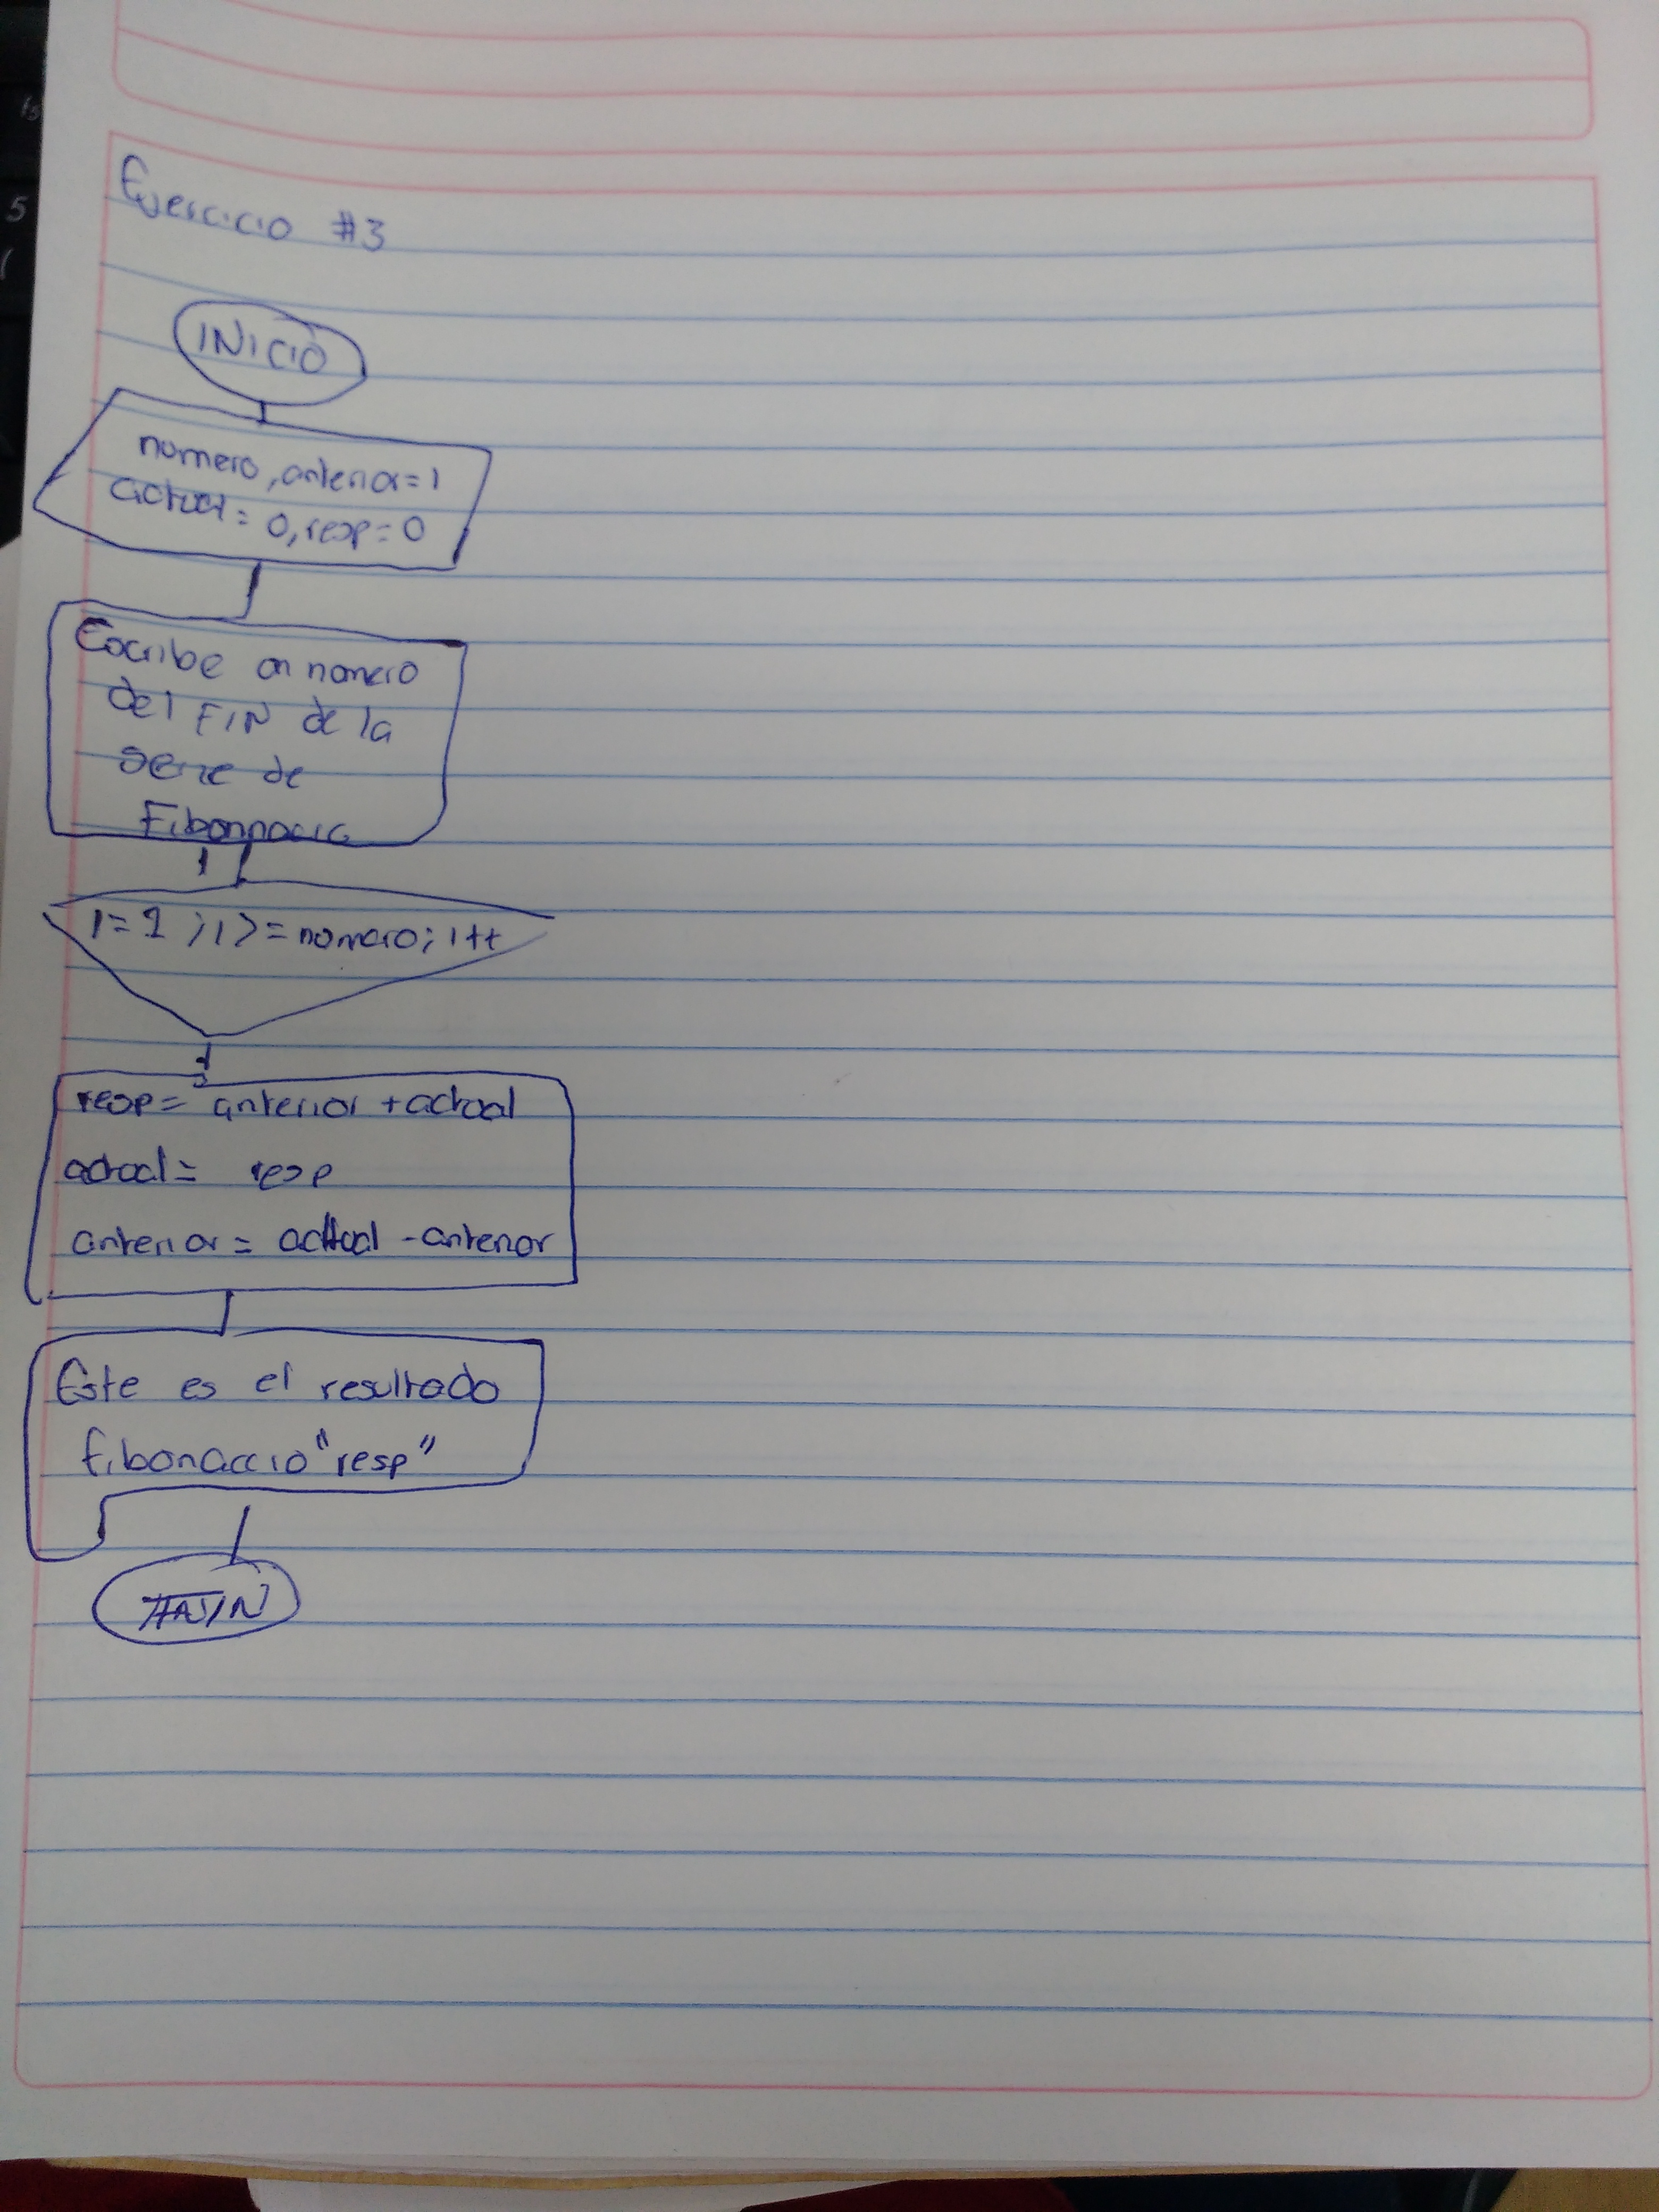 Ejercicio #3
INICIO
numero, anterior=1
actual= 0, resp=0
Escribe un numero
del FIN de la
serie de
Fibonnacia
i=1 ; i>=numero; i++
resp= anterior +actual
actual= resp
anterior= actual -anterior
Este es el resultado
fibonaccio "resp"